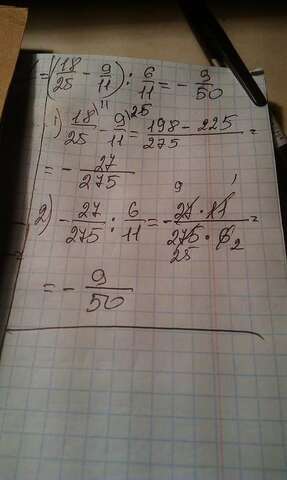 = (18/25 - 9/11) : 6/11 = - 9/50
1) 18/25 \11 - 9/11 \25 = 198 - 225/275 =
= - 27/275
2) - 27/275 : 6/11 = - 27 9 · 11 1/275 25 · 6 2 =
= - 9/50